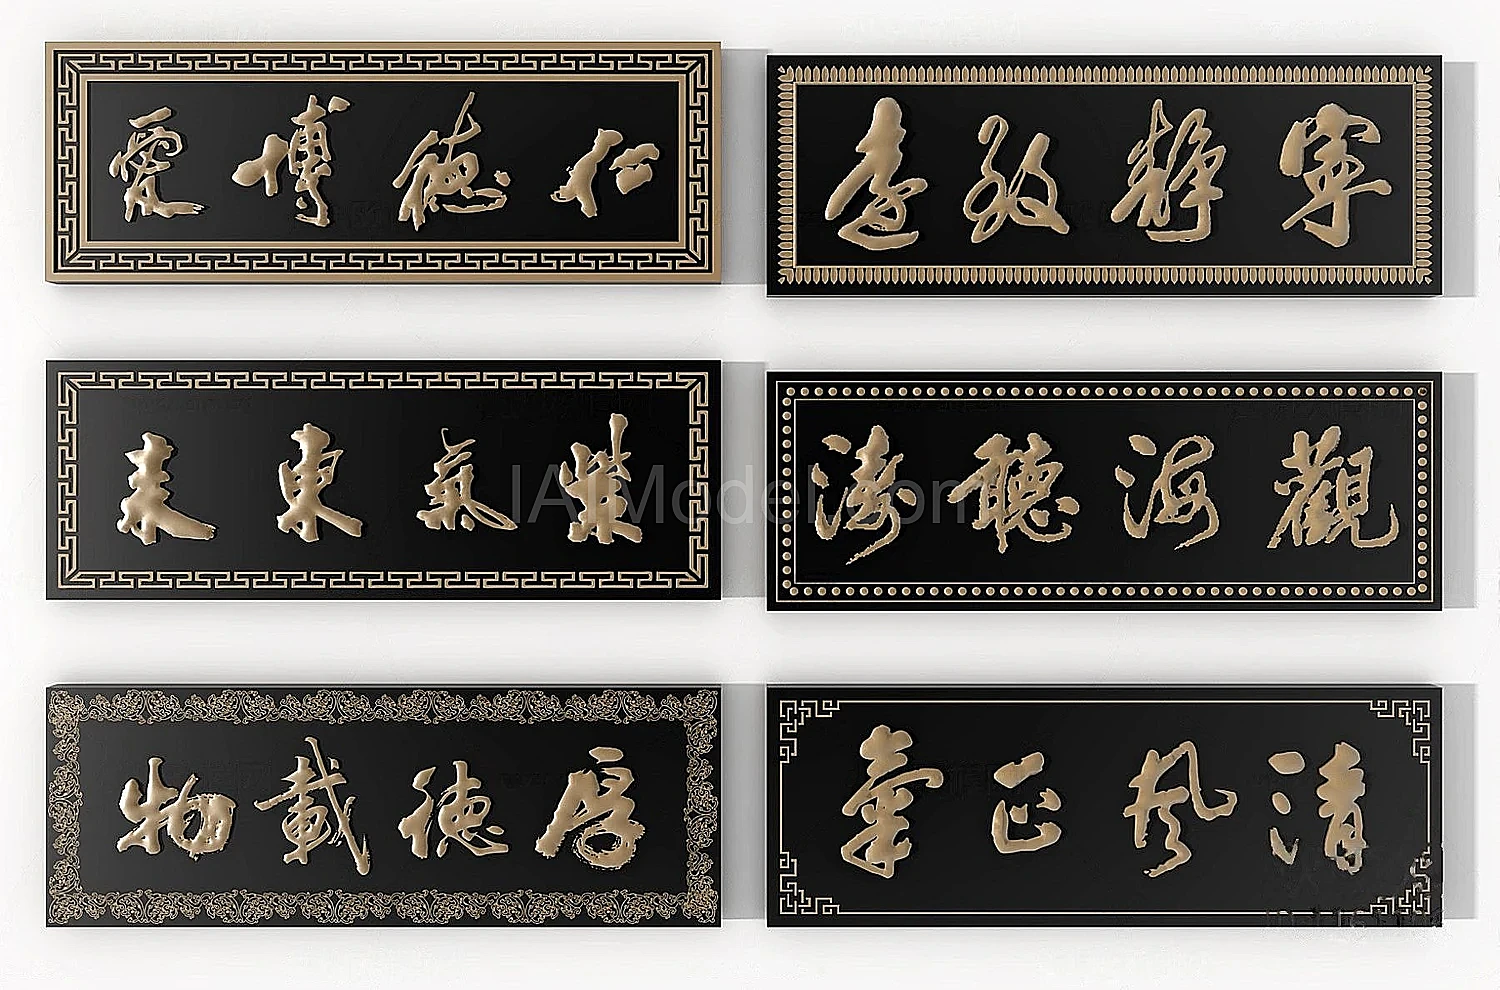 仁德博愛
寧靜致遠
紫氣東來
觀海聽濤
厚德載物
清風正氣
IAIModel.com